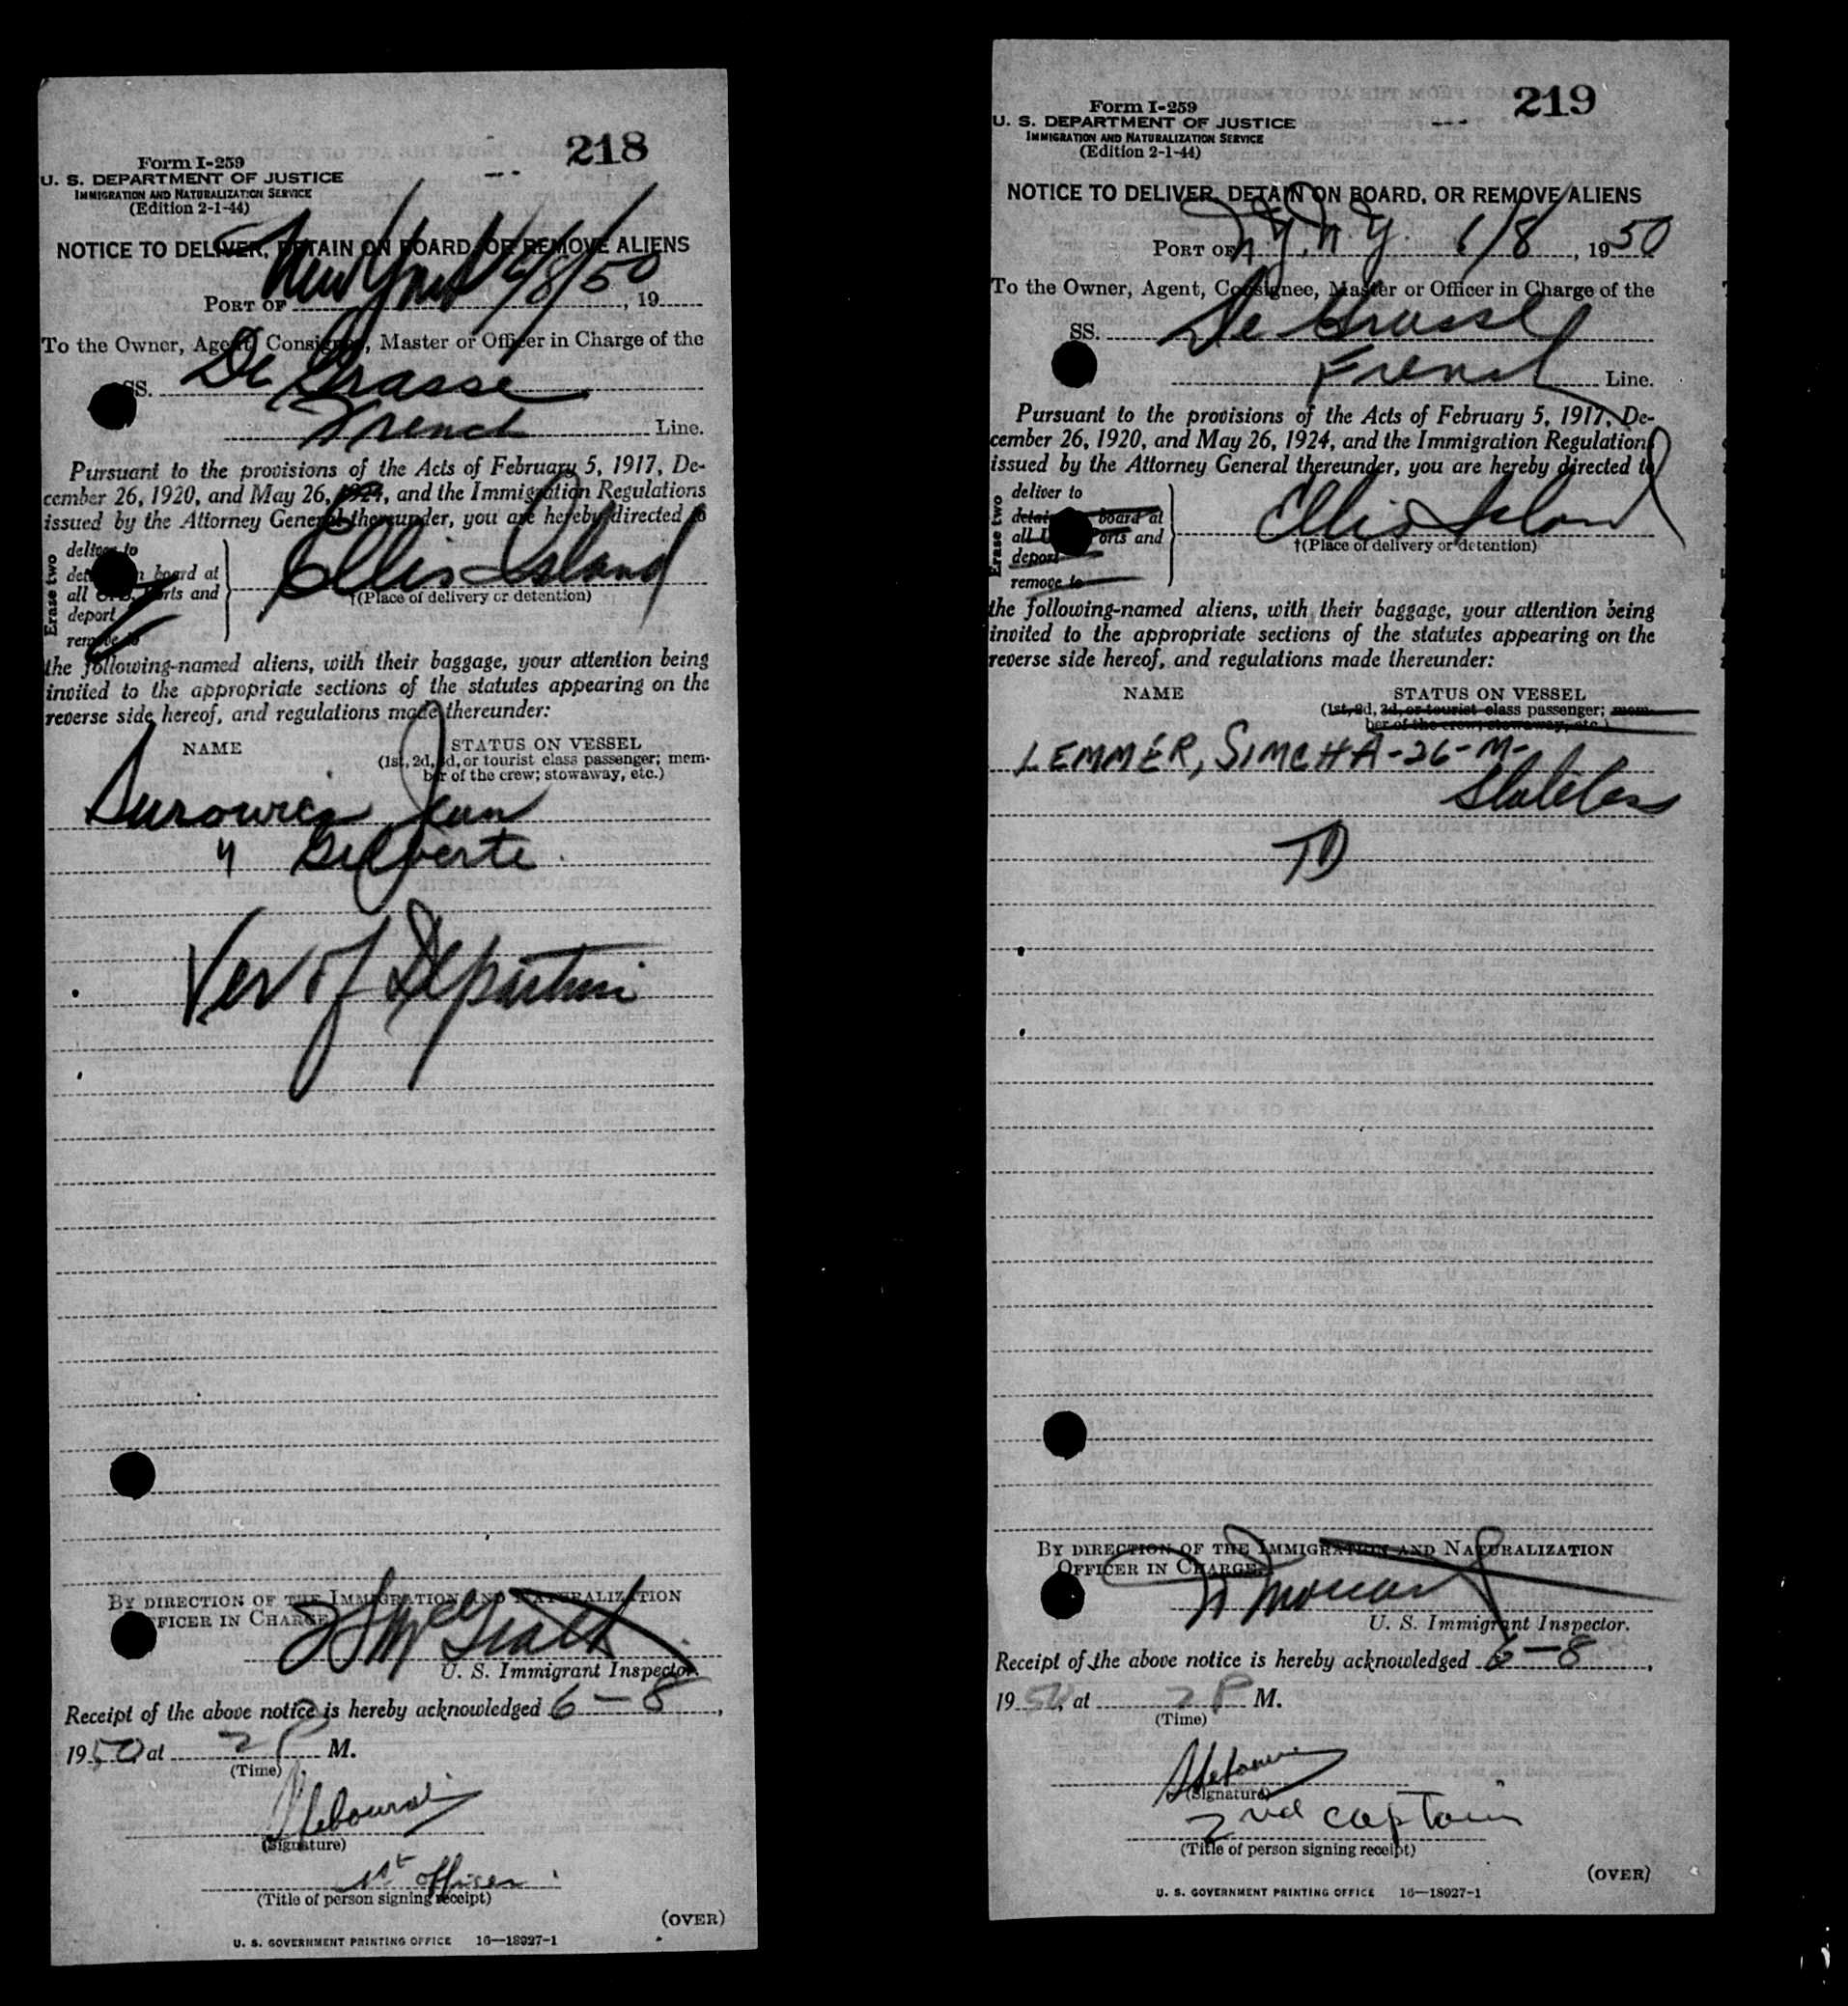 218
Form I-259
U. S. DEPARTMENT OF JUSTICE
IMMIGRATION AND NATURALIZATION SERVICE
(Edition 2-1-44)
NOTICE TO DELIVER, DETAIN ON BOARD, OR REMOVE ALIENS
PORT OF New York 6/8/50, 19
To the Owner, Agent, Consignee, Master or Officer in Charge of the
SS. De Grasse
French Line.
Pursuant to the provisions of the Acts of February 5, 1917, De-
cember 26, 1920, and May 26, 1924, and the Immigration Regulations
issued by the Attorney General thereunder, you are hereby directed to
Erase two
deliver to
detain on board at
all U. S. ports and
deport
remove to
Ellis Island
†(Place of delivery or detention)
the following-named aliens, with their baggage, your attention being
invited to the appropriate sections of the statutes appearing on the
reverse side hereof, and regulations made thereunder:
NAME STATUS ON VESSEL
(1st, 2d, 3d, or tourist class passenger; mem-
ber of the crew; stowaway, etc.)
Surowicz Jean
" Gilberte
Ver of Departure
BY DIRECTION OF THE IMMIGRATION AND NATURALIZATION
OFFICER IN CHARGE
McGrath
U. S. Immigrant Inspector.
Receipt of the above notice is hereby acknowledged 6-8,
1950 at 2 P M.
(Time)
(Signature)
1st officer
(Title of person signing receipt)
(OVER)
U. S. GOVERNMENT PRINTING OFFICE 16—18927-1
219
Form I-259
U. S. DEPARTMENT OF JUSTICE
IMMIGRATION AND NATURALIZATION SERVICE
(Edition 2-1-44)
NOTICE TO DELIVER, DETAIN ON BOARD, OR REMOVE ALIENS
PORT OF N.Y. N.Y. 6/8, 1950
To the Owner, Agent, Consignee, Master or Officer in Charge of the
SS. De Grasse
French Line.
Pursuant to the provisions of the Acts of February 5, 1917, De-
cember 26, 1920, and May 26, 1924, and the Immigration Regulations
issued by the Attorney General thereunder, you are hereby directed to
Erase two
deliver to
detain on board at
all U. S. ports and
deport
remove to
Ellis Island
†(Place of delivery or detention)
the following-named aliens, with their baggage, your attention being
invited to the appropriate sections of the statutes appearing on the
reverse side hereof, and regulations made thereunder:
NAME STATUS ON VESSEL
(1st, 2d, 3d, or tourist class passenger; mem-
ber of the crew; stowaway, etc.)
LEMMER, SIMCHA-26-M-
Stateless
TD
BY DIRECTION OF THE IMMIGRATION AND NATURALIZATION
OFFICER IN CHARGE
U. S. Immigrant Inspector.
Receipt of the above notice is hereby acknowledged 6-8,
1950, at 2 P M.
(Time)
(Signature)
2nd captain
(Title of person signing receipt)
(OVER)
U. S. GOVERNMENT PRINTING OFFICE 16—18927-1